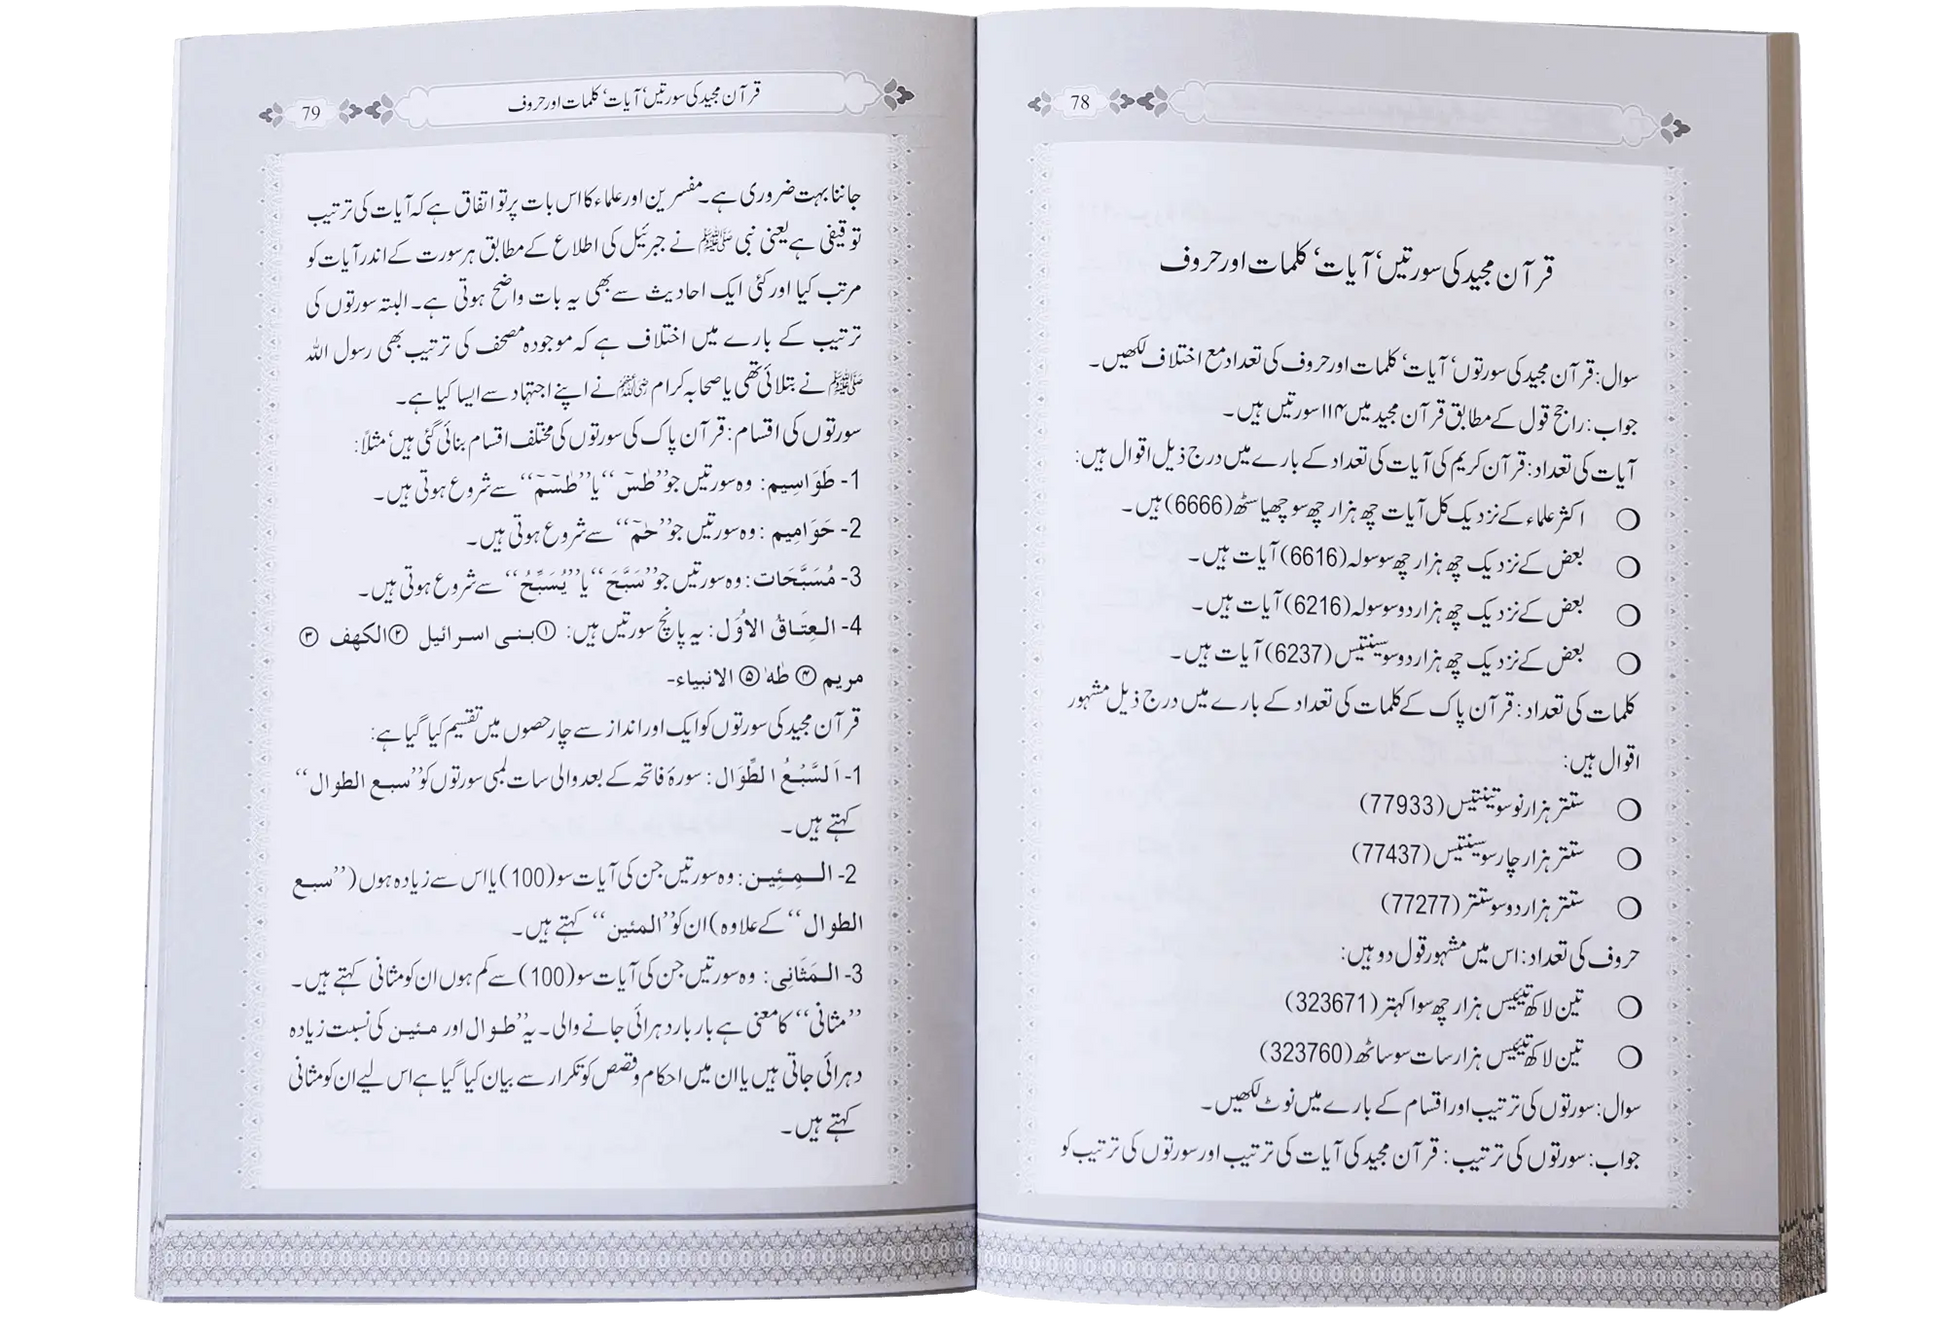 78
قرآن مجید کی سورتیں‘ آیات‘ کلمات اور حروف
سوال: قرآن مجید کی سورتوں‘ آیات‘ کلمات اور حروف کی تعداد مع اختلاف لکھیں۔
جواب: راجح قول کے مطابق قرآن مجید میں ۱۱۴ سورتیں ہیں۔
آیات کی تعداد: قرآن کریم کی آیات کی تعداد کے بارے میں درج ذیل اقوال ہیں:
○ اکثر علماء کے نزدیک کل آیات چھ ہزار چھ سو چھیاسٹھ (6666) ہیں۔
○ بعض کے نزدیک چھ ہزار چھ سو سولہ (6616) آیات ہیں۔
○ بعض کے نزدیک چھ ہزار دو سو سولہ (6216) آیات ہیں۔
○ بعض کے نزدیک چھ ہزار دو سو سینتیس (6237) آیات ہیں۔
کلمات کی تعداد: قرآن پاک کے کلمات کی تعداد کے بارے میں درج ذیل مشہور
اقوال ہیں:
○ ستتر ہزار نو سو تینتیس (77933)
○ ستتر ہزار چار سو سینتیس (77437)
○ ستتر ہزار دو سو ستتر (77277)
حروف کی تعداد: اس میں مشہور قول دو ہیں:
○ تین لاکھ تیئیس ہزار چھ سو اکہتر (323671)
○ تین لاکھ تیئیس ہزار سات سو ساٹھ (323760)
سوال: سورتوں کی ترتیب اور اقسام کے بارے میں نوٹ لکھیں۔
جواب: سورتوں کی ترتیب: قرآن مجید کی آیات کی ترتیب اور سورتوں کی ترتیب کو
قرآن مجید کی سورتیں‘ آیات‘ کلمات اور حروف 79
جاننا بہت ضروری ہے۔ مفسرین اور علماء کا اس بات پر تو اتفاق ہے کہ آیات کی ترتیب
توقیفی ہے یعنی نبی ﷺ نے جبرئیل کی اطلاع کے مطابق ہر سورت کے اندر آیات کو
مرتب کیا اور کئی ایک احادیث سے بھی یہ بات واضح ہوتی ہے۔ البتہ سورتوں کی
ترتیب کے بارے میں اختلاف ہے کہ موجودہ مصحف کی ترتیب بھی رسول اللہ
ﷺ نے بتلائی تھی یا صحابہ کرام رضی اللہ عنہم نے اپنے اجتہاد سے ایسا کیا ہے۔
سورتوں کی اقسام: قرآن پاک کی سورتوں کی مختلف اقسام بنائی گئی ہیں‘ مثلاً:
1- طَوَاسِیم: وہ سورتیں جو ’’طٰسٓ‘‘ یا ’’طٰسٓمٓ‘‘ سے شروع ہوتی ہیں۔
2- حَوَامِیم: وہ سورتیں جو ’’حٰمٓ‘‘ سے شروع ہوتی ہیں۔
3- مُسَبَّحَات: وہ سورتیں جو ’’سَبَّحَ‘‘ یا ’’یُسَبِّحُ‘‘ سے شروع ہوتی ہیں۔
4- العِتَاقُ الاُوَّل: یہ پانچ سورتیں ہیں: ①بنی اسرائیل ②الکھف ③
مریم ④ طٰہٰ ⑤ الانبیاء-
قرآن مجید کی سورتوں کو ایک اور انداز سے چار حصوں میں تقسیم کیا گیا ہے:
1- اَلسَّبْعُ الطِّوَال: سورۂ فاتحہ کے بعد والی سات لمبی سورتوں کو ’’سبع الطوال‘‘
کہتے ہیں۔
2- المِئِین: وہ سورتیں جن کی آیات سو (100) یا اس سے زیادہ ہوں (’’سبع
الطوال‘‘ کے علاوہ) ان کو ’’المئین‘‘ کہتے ہیں۔
3- المَثَانِی: وہ سورتیں جن کی آیات سو (100) سے کم ہوں ان کو مثانی کہتے ہیں۔
’’مثانی‘‘ کا معنی ہے بار بار دہرائی جانے والی۔ یہ ’’طوال اور مئین کی نسبت زیادہ
دہرائی جاتی ہیں یا ان میں احکام و قصص کو تکرار سے بیان کیا گیا ہے اس لیے ان کو مثانی
کہتے ہیں۔